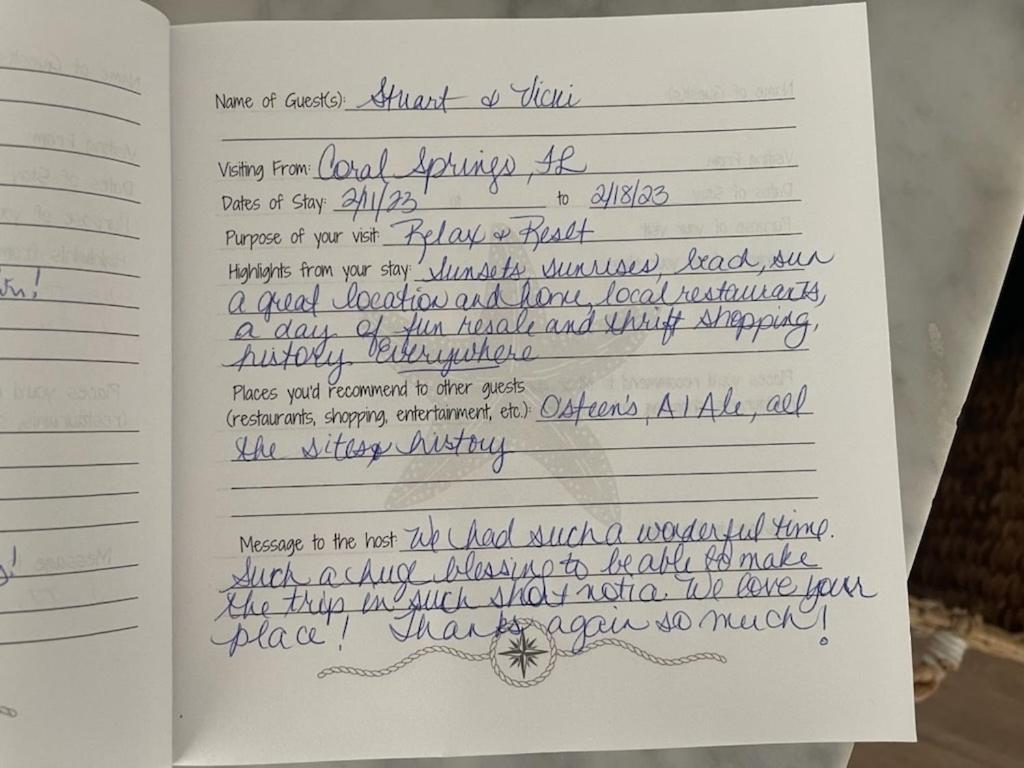 Name of Guest(s): Stuart & Vicki
Visiting From: Coral Springs, FL
Dates of Stay: 2/11/23 to 2/18/23
Purpose of your visit: Relax & Reset
Highlights from your stay: Sunsets, sunrises, beach, sun
a great location and home, local restaurants,
a day of fun resale and thrift shopping,
history everywhere
Places you'd recommend to other guests
(restaurants, shopping, entertainment, etc.): O'steen's, A1A Ale, all
the sites & history
Message to the host: We had such a wonderful time.
Such a huge blessing to be able to make
the trip on such short notice. We love your
place! Thanks again so much!
vn!
s!